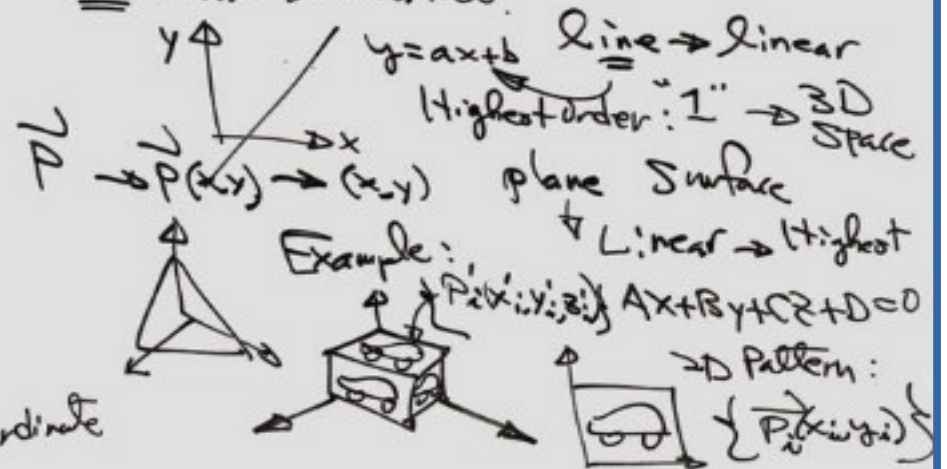 y
y=ax+b line → linear
Highest order: "1" → 3D Space
x
P → P(x,y) → (x,y) plane Surface
Linear → Highest
Example:
Pi'(xi',yi',zi') Ax+By+Cz+D=0
2D Pattern:
{Pi(xi,yi)}